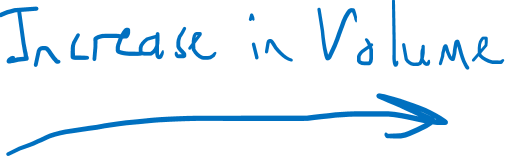 Increase in Volume